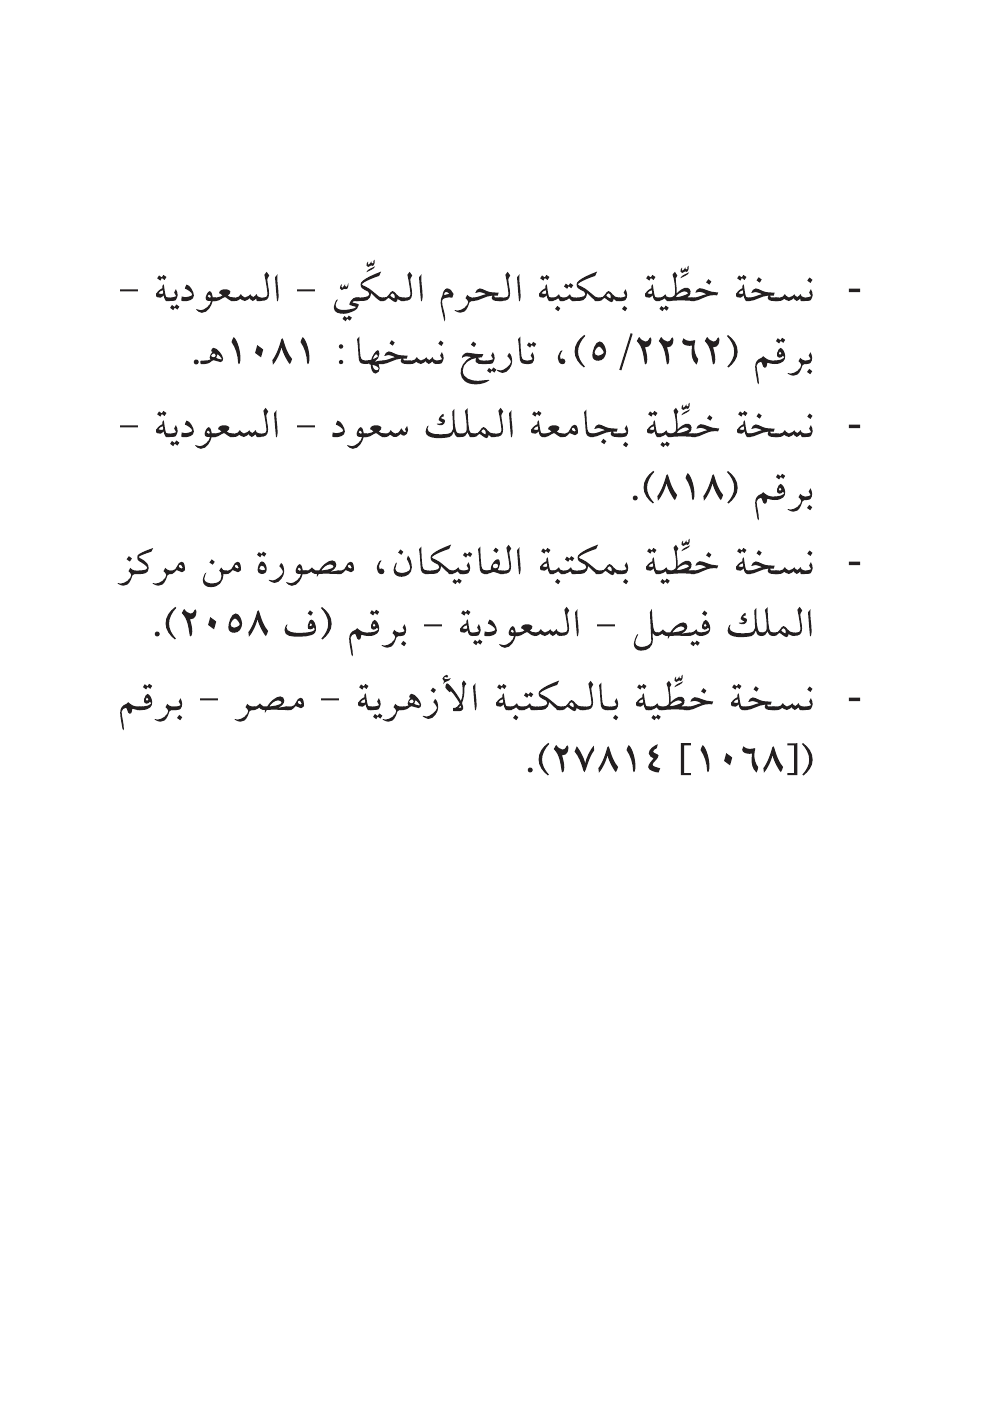 - نسخة خطِّية بمكتبة الحرم المكِّيّ – السعودية –
برقم (٢٢٦٢/ ٥)، تاريخ نسخها: ١٠٨١هـ.
- نسخة خطِّية بجامعة الملك سعود – السعودية –
برقم (٨١٨).
- نسخة خطِّية بمكتبة الفاتيكان، مصورة من مركز
الملك فيصل – السعودية – برقم (ف ٢٠٥٨).
- نسخة خطِّية بالمكتبة الأزهرية – مصر – برقم
([١٠٦٨] ٢٧٨١٤).